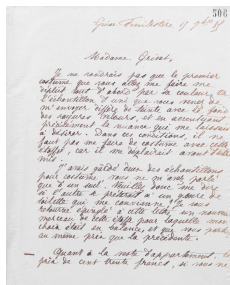 506
Guise Familistère 17 9bre 85
Madame Griset,
Je ne voudrais pas que le premier
costume que vous allez me faire me
déplût tout d'abord par sa couleur, or
l'échantillon d'uni que vous venez de
m'envoyer diffère de teinte avec le fond
des rayures velours, et en accentuant
précisément la nuance que me laissait
à désirer. Dans ces conditions, il ne
faut pas me faire de costume avec cette
étoffe, car il me déplairait avant d'être
mis.
J'avais gardé deux des échantillons
pour costume, vous ne
que d'un seul. Veuillez donc me dire
si l'autre a précisé à un genre de
toilette qui me convienne. Je vous
retourne épinglé à cette lettre, un nouveau
morceau de cette étoffe pour laquelle mon
choix était en balance, et que vous
au même prix que la précédente.
Quant à la note d'appartement, le
prix de cent trente francs, si vous ne